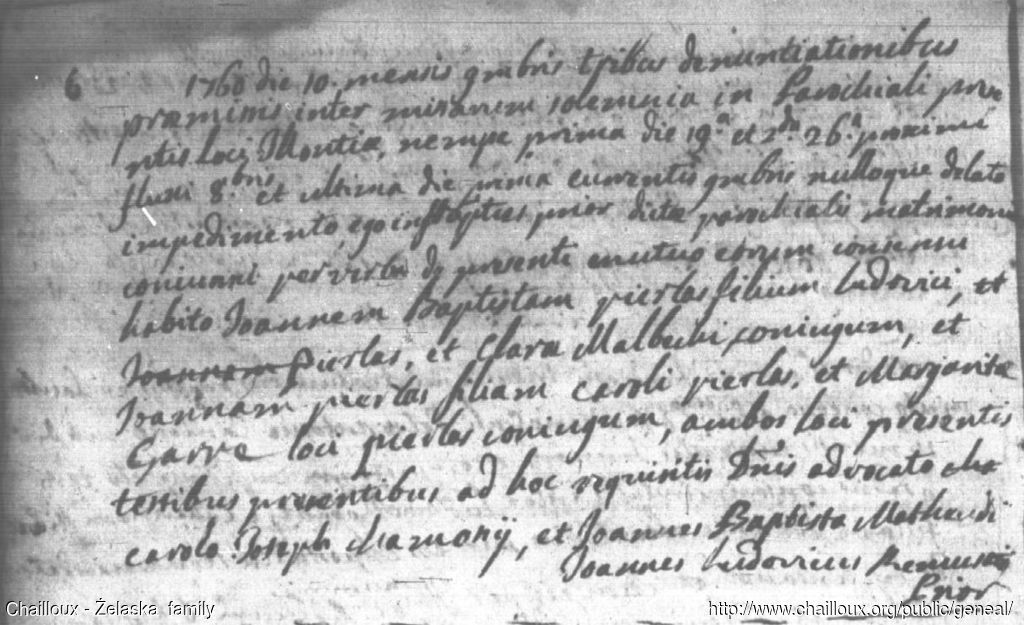 6
1760 die 10. mensis 9mbris tribus denuntiationibus
præmissis inter missarum solemnia in Parochiali præse
ntis loci Ilontiæ, nempe prima die 19.a et 2.da 26.a proximi
fluxi 8.bris et ultima die prima currentis 9mbris nulloque delato
impedimento, ego prior dictæ parochialis matrimonio
coniunxi per verba de presenti mutuo eorum consensu
habito Joannem Baptistam pierlas filium ludovici, et
Joannam Pierlas, et Claræ Malbechi coniugum, et
Joannam pierlas filiam caroli pierlas, et Margarita
Garre loci pierlas coniugum, ambos loci presentis
testibus presentibus ad hoc requisitis Dnis advocato
carolo Joseph, et Joannes Baptista
Joannes ludovicus
Prior
Chailloux - Żelaska family
http://www.chailloux.org/public/geneal/